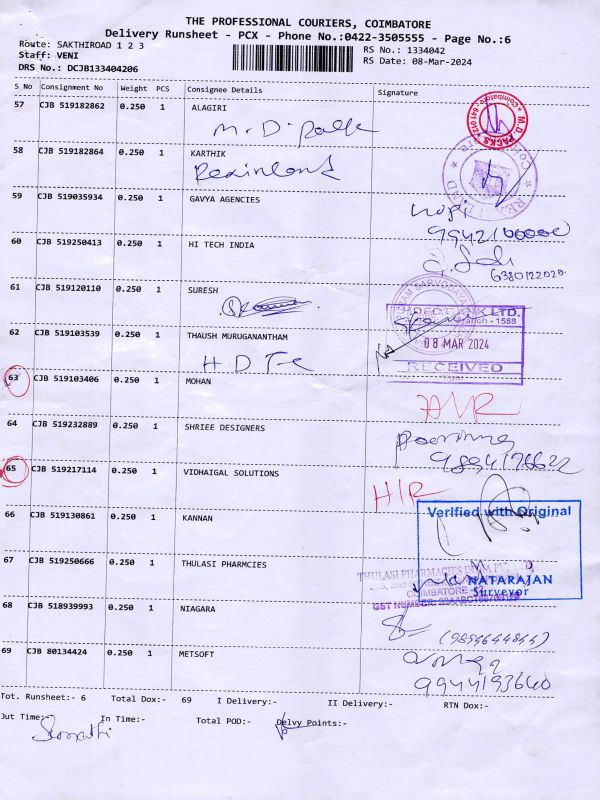 THE PROFESSIONAL COURIERS, COIMBATORE
Delivery Runsheet - PCX - Phone No.:0422-3505555 - Page No.:6
Route: SAKTHIROAD 1 2 3
RS No.: 1334042
Staff: VENI
RS Date: 08-Mar-2024
DRS No.: DCJB133404206
S No Consignment No Weight PCS Consignee Details Signature
57 CJB 519182862 0.250 1 ALAGIRI
M.D.
M.D. PACKS Coimbatore - 641 012
58 CJB 519182864 0.250 1 KARTHIK
Rexinland
59 CJB 519035934 0.250 1 GAVYA AGENCIES
9942100000
60 CJB 519250413 0.250 1 HI TECH INDIA
6380122020
61 CJB 519120110 0.250 1 SURESH
62 CJB 519103539 0.250 1 THAUSH MURUGANANTHAM
Branch - 1588
08 MAR 2024
RECEIVED
63 CJB 519103406 0.250 1 MOHAN
64 CJB 519232889 0.250 1 SHRIEE DESIGNERS
65 CJB 519217114 0.250 1 VIDHAIGAL SOLUTIONS
66 CJB 519130861 0.250 1 KANNAN
Verified with Original
NATARAJAN
Surveyor
67 CJB 519250666 0.250 1 THULASI PHARMCIES
THULASI PHARMACIES INDIA PVT LTD,
COIMBATORE
GST NUMBER
68 CJB 518939993 0.250 1 NIAGARA
69 CJB 80134424 0.250 1 METSOFT
9944193640
Tot. Runsheet:- 6 Total Dox:- 69 I Delivery:- II Delivery:- RTN Dox:-
Out Time:- In Time:- Total POD:- Delvy Points:-